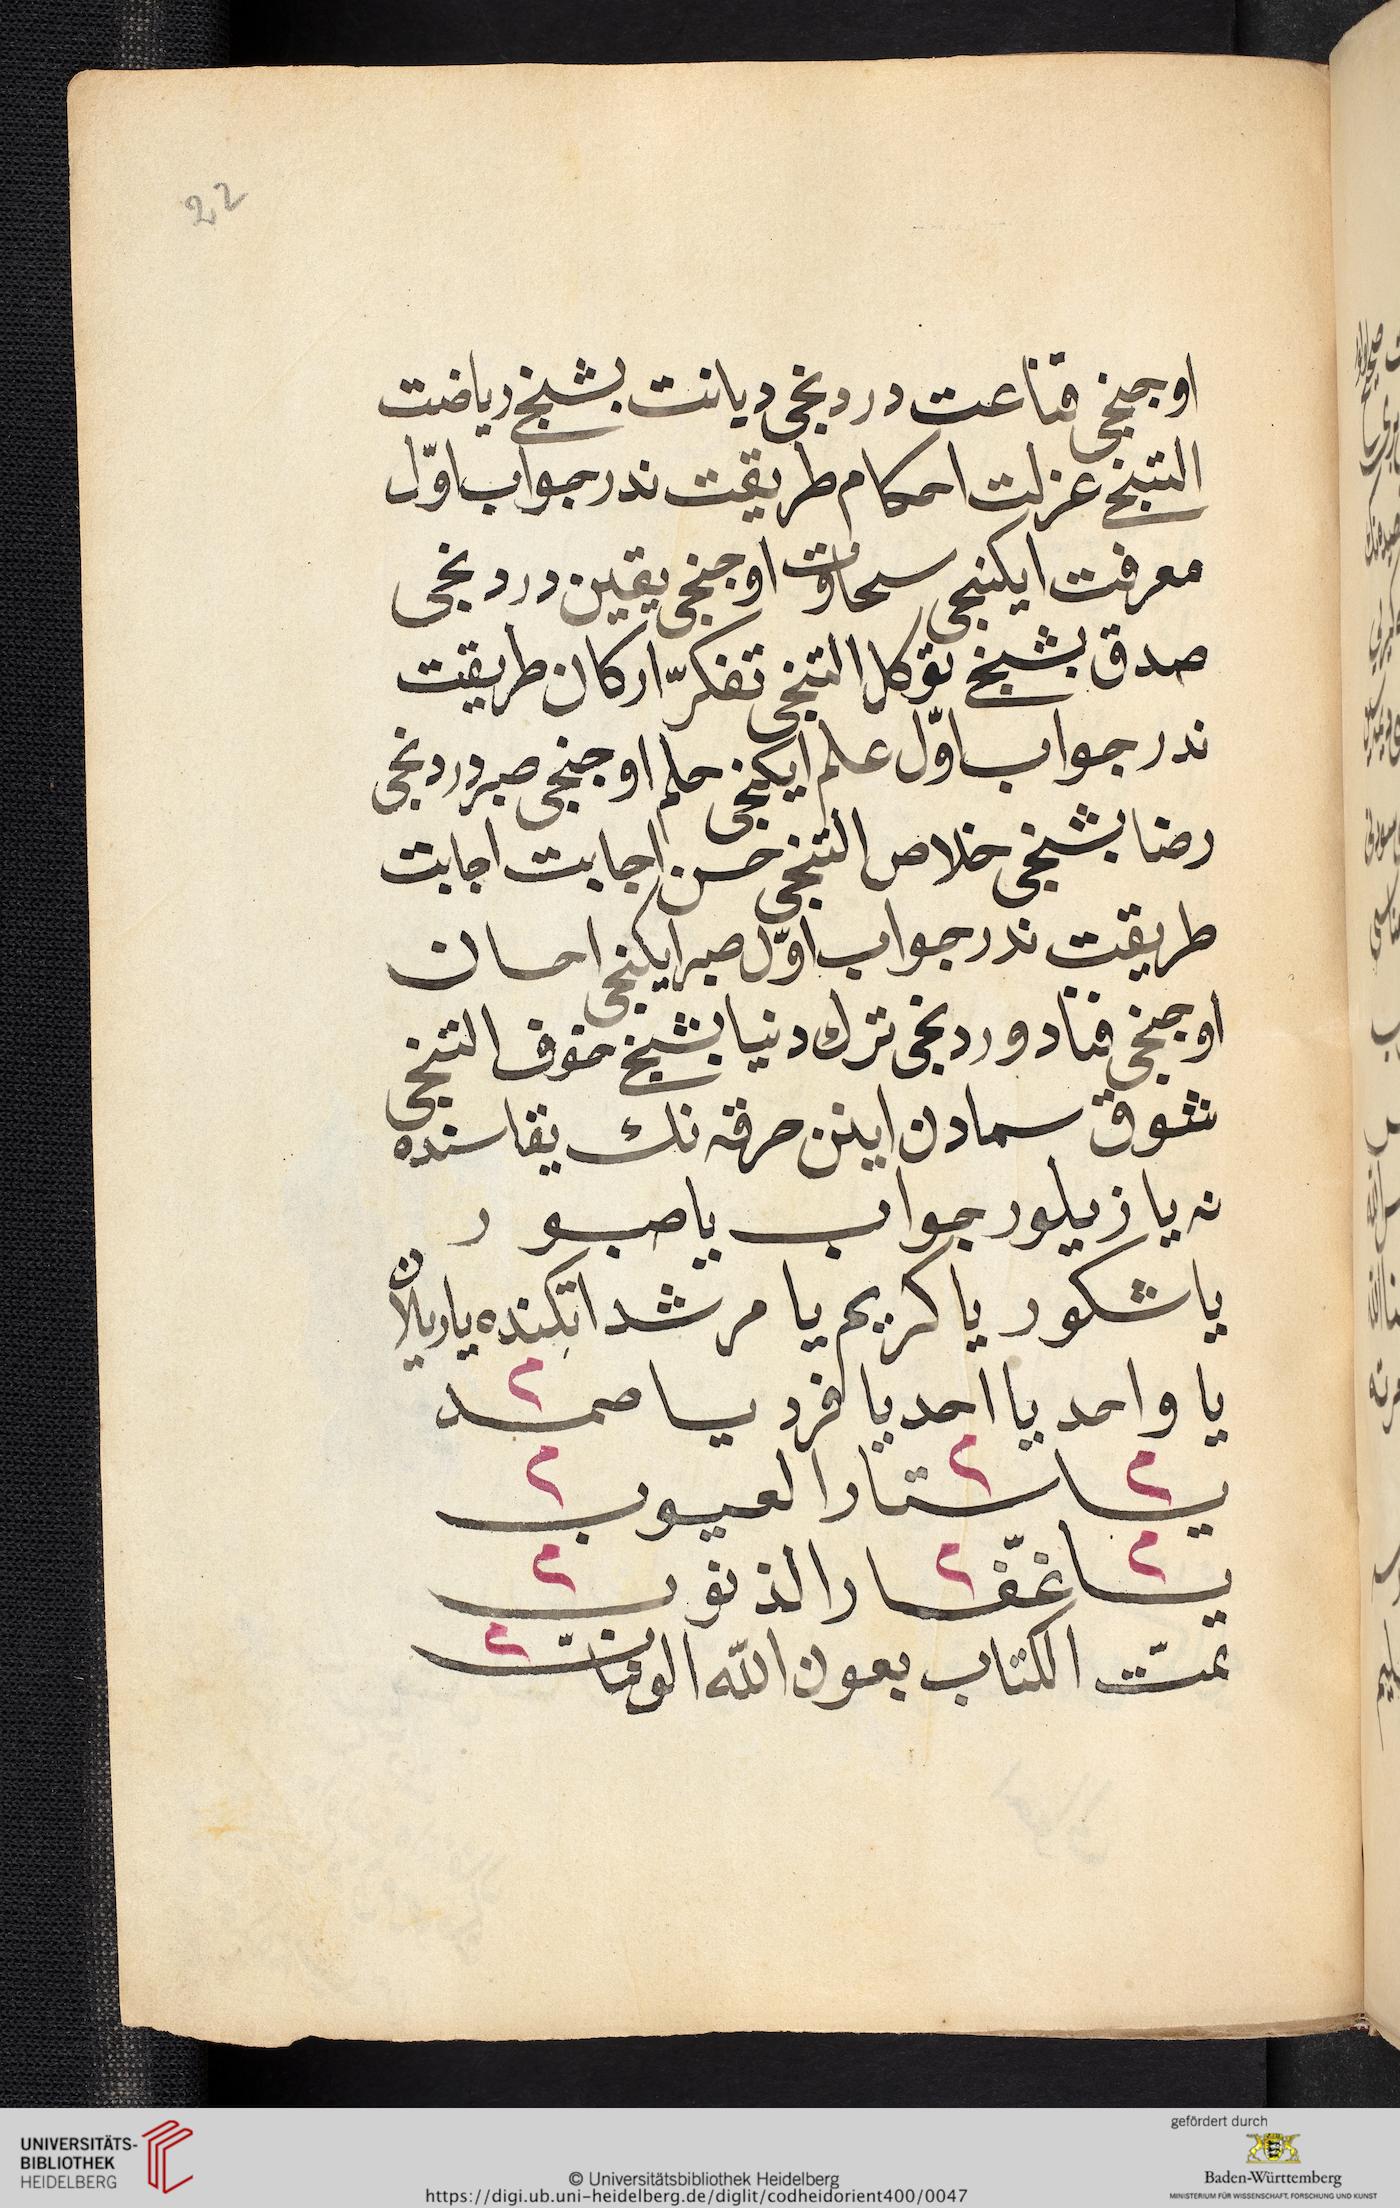 22
اوجنجی قناعت دردنجی دیانت بشنجی ریاضت
التنجی عزلت احکام طریقت ندر جواب اوّل
معرفت ایکنجی سخاوت اوجنجی یقین دردنجی
صدق بشنجی توکل التنجی تفکّر ارکان طریقت
ندر جواب اوّل علم ایکنجی حلم اوجنجی صبر دردنجی
رضا بشنجی خلاص التنجی حسن اجابت اجابت
طریقت ندر جواب اوّل صبر ایکنجی احسان
اوجنجی فنا دوردنجی ترك دنیا بشنجی خوف التنجی
شوق سمادن اینن خرقه نك یقاسنده
نه یازیلور جواب یا صبور
یا شکور یا کریم یا مرشد اتکنده یازیلان
یا واحد یا احد یا فرد یا صمد
یا ستار العیوب
یا غفّار الذنوب
تمّت الکتاب بعون الله
UNIVERSITÄTS-
BIBLIOTHEK
HEIDELBERG
© Universitätsbibliothek Heidelberg
https://digi.ub.uni-heidelberg.de/diglit/codheidorient400/0047
gefördert durch
Baden-Württemberg
MINISTERIUM FÜR WISSENSCHAFT, FORSCHUNG UND KUNST